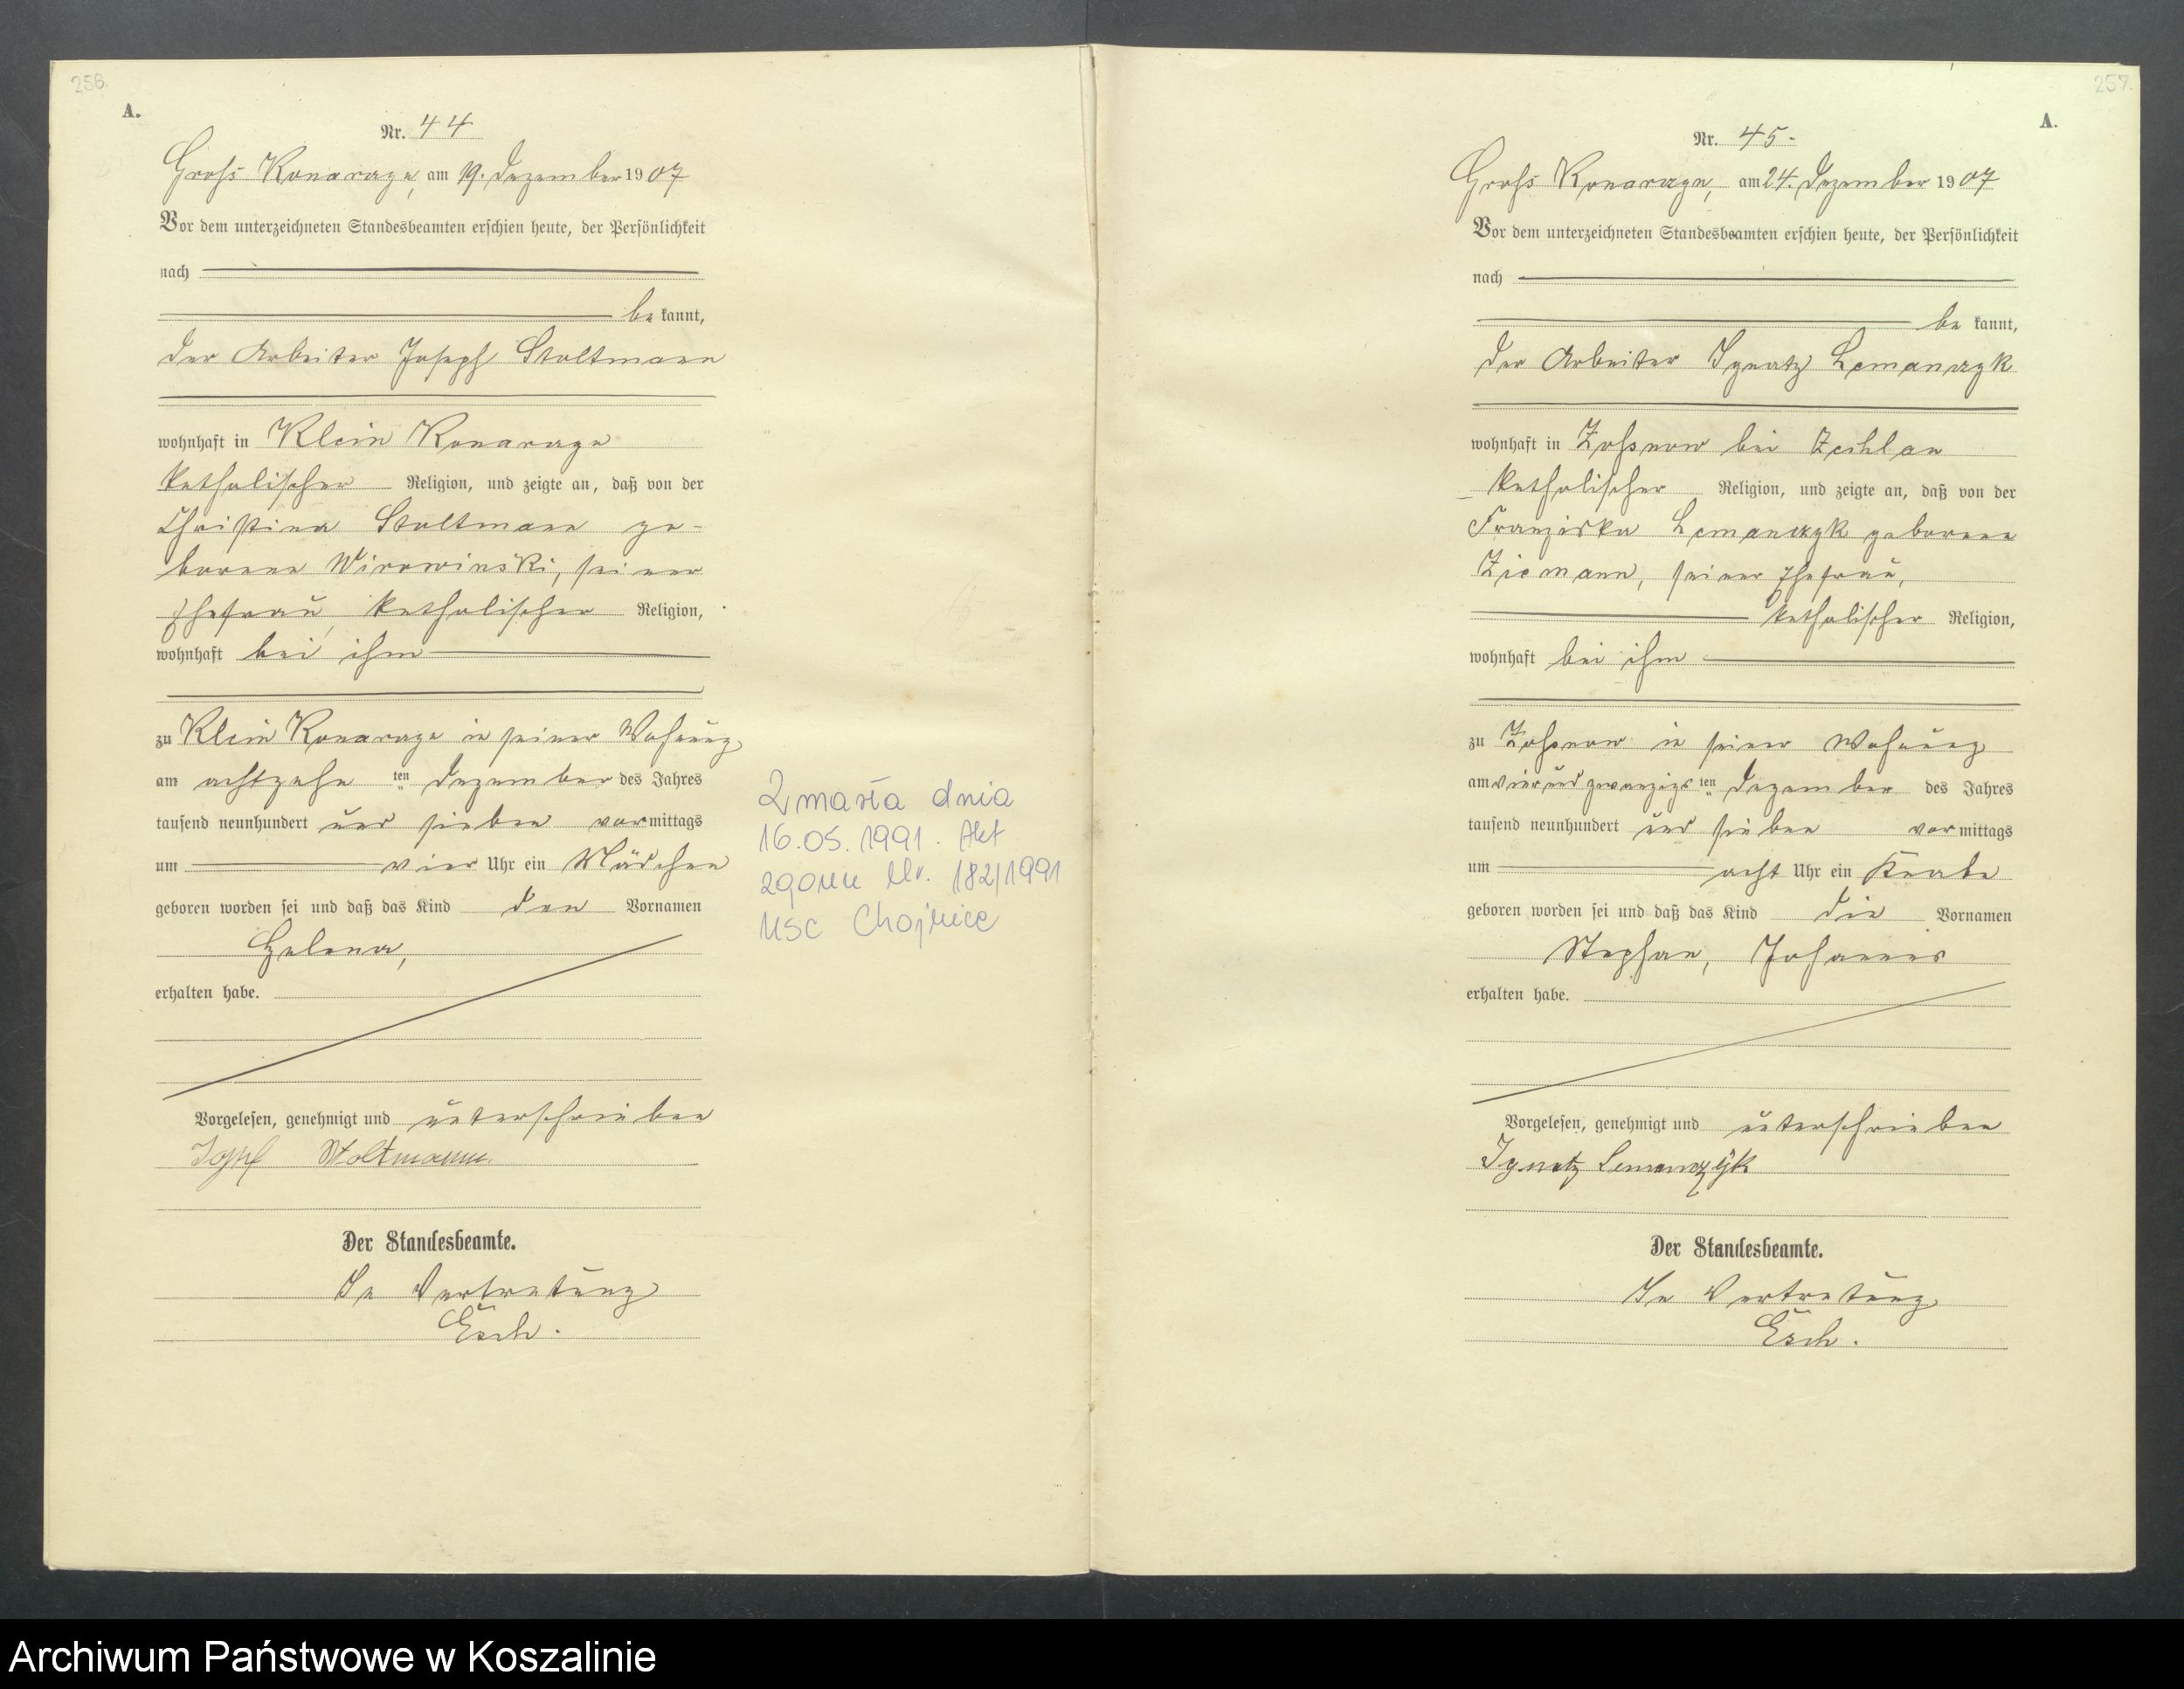 256.
A.
Nr. 44
Gross Konarczyn, am 19. Dezember 1907
Vor dem unterzeichneten Standesbeamten erschien heute, der Persönlichkeit
nach
be kannt,
der Arbeiter Joseph Stoltmann
wohnhaft in Klein Konarczyn
katholischer Religion, und zeigte an, daß von der
Christina Stoltmann ge-
borene Wirowinski, seiner
Ehefrau, katholischer Religion,
wohnhaft bei ihm
zu Klein Konarczyn in seiner Wohnung
am achtzehn ten Dezember des Jahres
tausend neunhundert und sieben vormittags
um vier Uhr ein Mädchen
geboren worden sei und daß das Kind den Vornamen
Helena,
erhalten habe.
Vorgelesen, genehmigt und unterschrieben
Josef Stoltmann.
Der Standesbeamte.
In Vertretung
Esch.
Zmarła dnia
16.05.1991. Akt
zgonu Nr. 182/1991
USC Chojnice
257.
A.
Nr. 45.
Gross Konarczyn, am 24. Dezember 1907
Vor dem unterzeichneten Standesbeamten erschien heute, der Persönlichkeit
nach
be kannt,
der Arbeiter Ignatz Lemanczyk
wohnhaft in Zossnow bei Zechlau
katholischer Religion, und zeigte an, daß von der
Franziska Lemanczyk geborene
Ziemann, seiner Ehefrau,
katholischer Religion,
wohnhaft bei ihm
zu Zossnow in seiner Wohnung
am vierundzwanzigs ten Dezember des Jahres
tausend neunhundert und sieben vormittags
um acht Uhr ein Knabe
geboren worden sei und daß das Kind die Vornamen
Stephan, Johannes
erhalten habe.
Vorgelesen, genehmigt und unterschrieben
Ignatz Lemanczÿk
Der Standesbeamte.
In Vertretung
Esch.
Archiwum Państwowe w Koszalinie